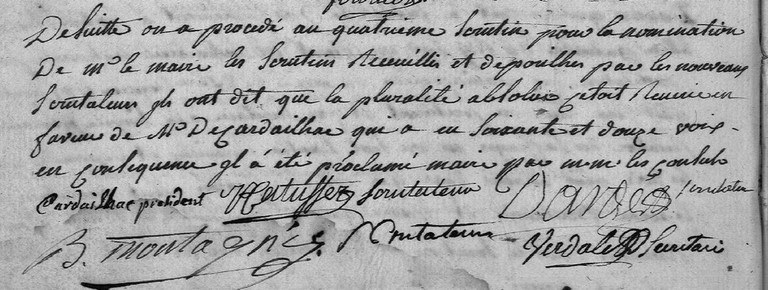 De suitte on a procedé au quatrieme scrutin pour la nomination
De mr le maire les scrutins Recueillis et depouilhes par les nouveaux
scrutateurs ils ont dit que la pluralité absolue cetoit Reunie en
faveur de Mr De Cardailhac qui a eu soixante et douze voix
en consequence il á été proclamé maire par m.m. les consuls
Cardailhac president scrutateur scrutateur
B. montagné scrutateur Verdale Secretaire